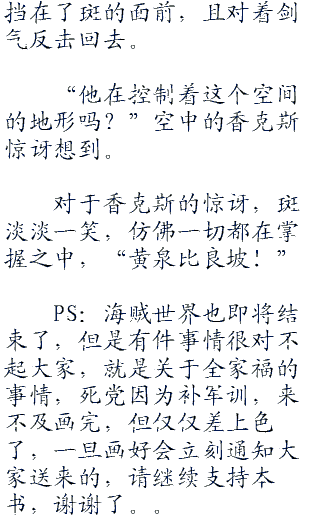 挡在了斑的面前，且对着剑
气反击回去。
“他在控制着这个空间
的地形吗？”空中的香克斯
惊讶想到。
对于香克斯的惊讶，斑
淡淡一笑，仿佛一切都在掌
握之中，“黄泉比良坡！”
PS：海贼世界也即将结
束了，但是有件事情很对不
起大家，就是关于全家福的
事情，死党因为补军训，来
不及画完，但仅仅差上色
了，一旦画好会立刻通知大
家送来的，请继续支持本
书，谢谢了。。